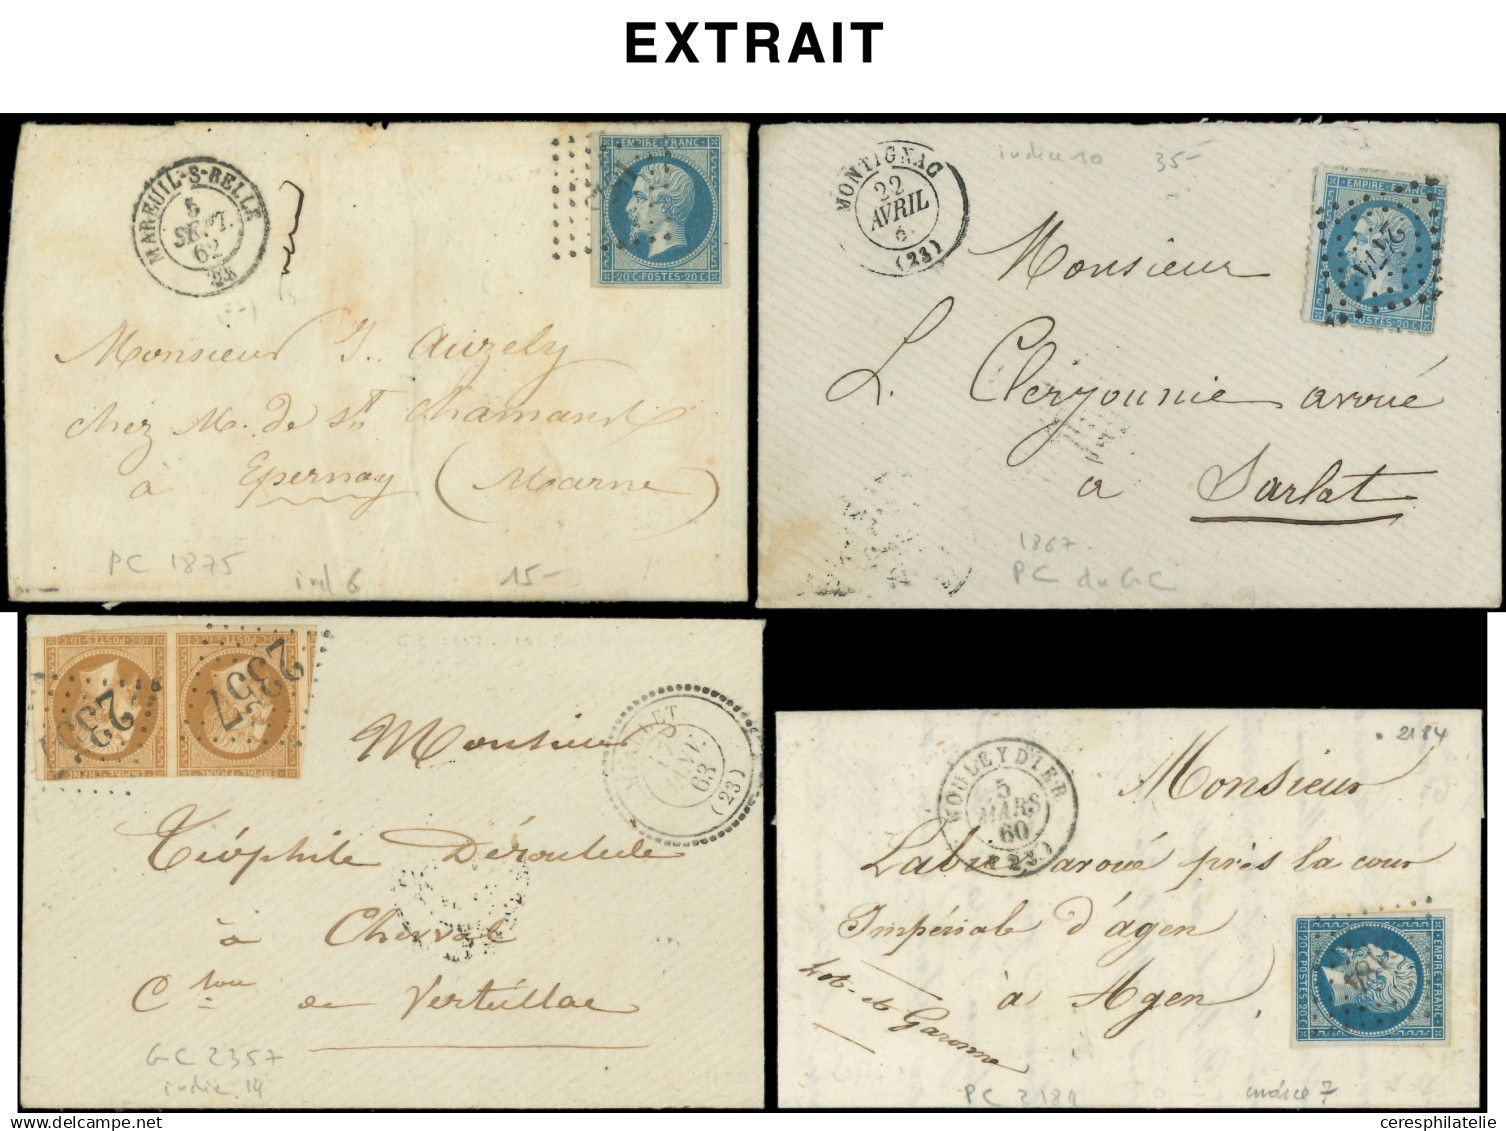 EXTRAIT
MAREUIL-S-BELLE
5
SEPT.
62
EMPIRE FRANC
20 C POSTES 20 C
Monsieur J. Auzely
chez M. de St Chamant
à Epernay (Marne)
PC 1875
ind 6
15-
MONTIGNAC
22
AVRIL
6
(23)
indice 10
35-
EMPIRE FRANC
POSTES 20 C
Monsieur
L. Clerjounie avoué
à Sarlat
1867
PC du GC
10 C POSTES 10 C
2357
EMPIRE FRANC
MAREUIL
63
(23)
Monsieur
Théophile Déroulède
à Cherval
Cton de Verteillac
GC 2357
indice 14
2184
MOULEYDIER
5
MARS
60
(23)
Monsieur
avoué près la cour
Impériale d'agen
à Agen
Lot-et-Garonne
20 C POSTES 20 C
EMPIRE FRANC
PC 2184
indice 7
ceresphilatelie